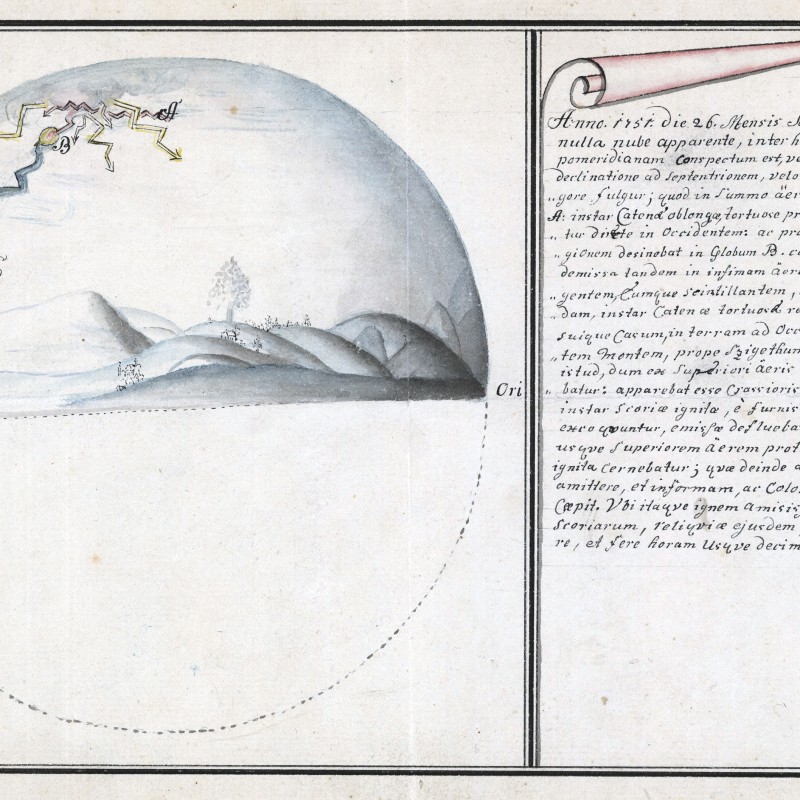 A
B
Ori
Anno. 1751. die 26. Mensis
nulla nube apparente, inter h
pomeridianam Conspectum est, ve
declinatione ad Septentrionem, velo
„gore fulgur; quod in Summo äer
A: instar Catenæ oblongæ, tortuose pr
„tur directe in Occidentem: ac pro
„gionem desinebat in Globum B. c
demissa tandem in infimam äer
„gentem, Eumque Scintillantem,
„dam, instar Catenæ tortuosæ r
suique Casum, in terram ad Occ
„tem Montem, prope Szigethum
istud, dum ex Superiori äeris
„batur: apparebat esse Crassioris
instar Scoriæ ignita, è furnis
exco quuntur, emissæ defluebat
usqve Superiorem äerem prot
ignita Cernebatur; qvæ deinde a
amittere, et informam, ac Colo
Cæpit. Vbi itaqve ignem amisis
Scoriarum, reliqviæ ejusdem
re, et fere horam Usqve decim